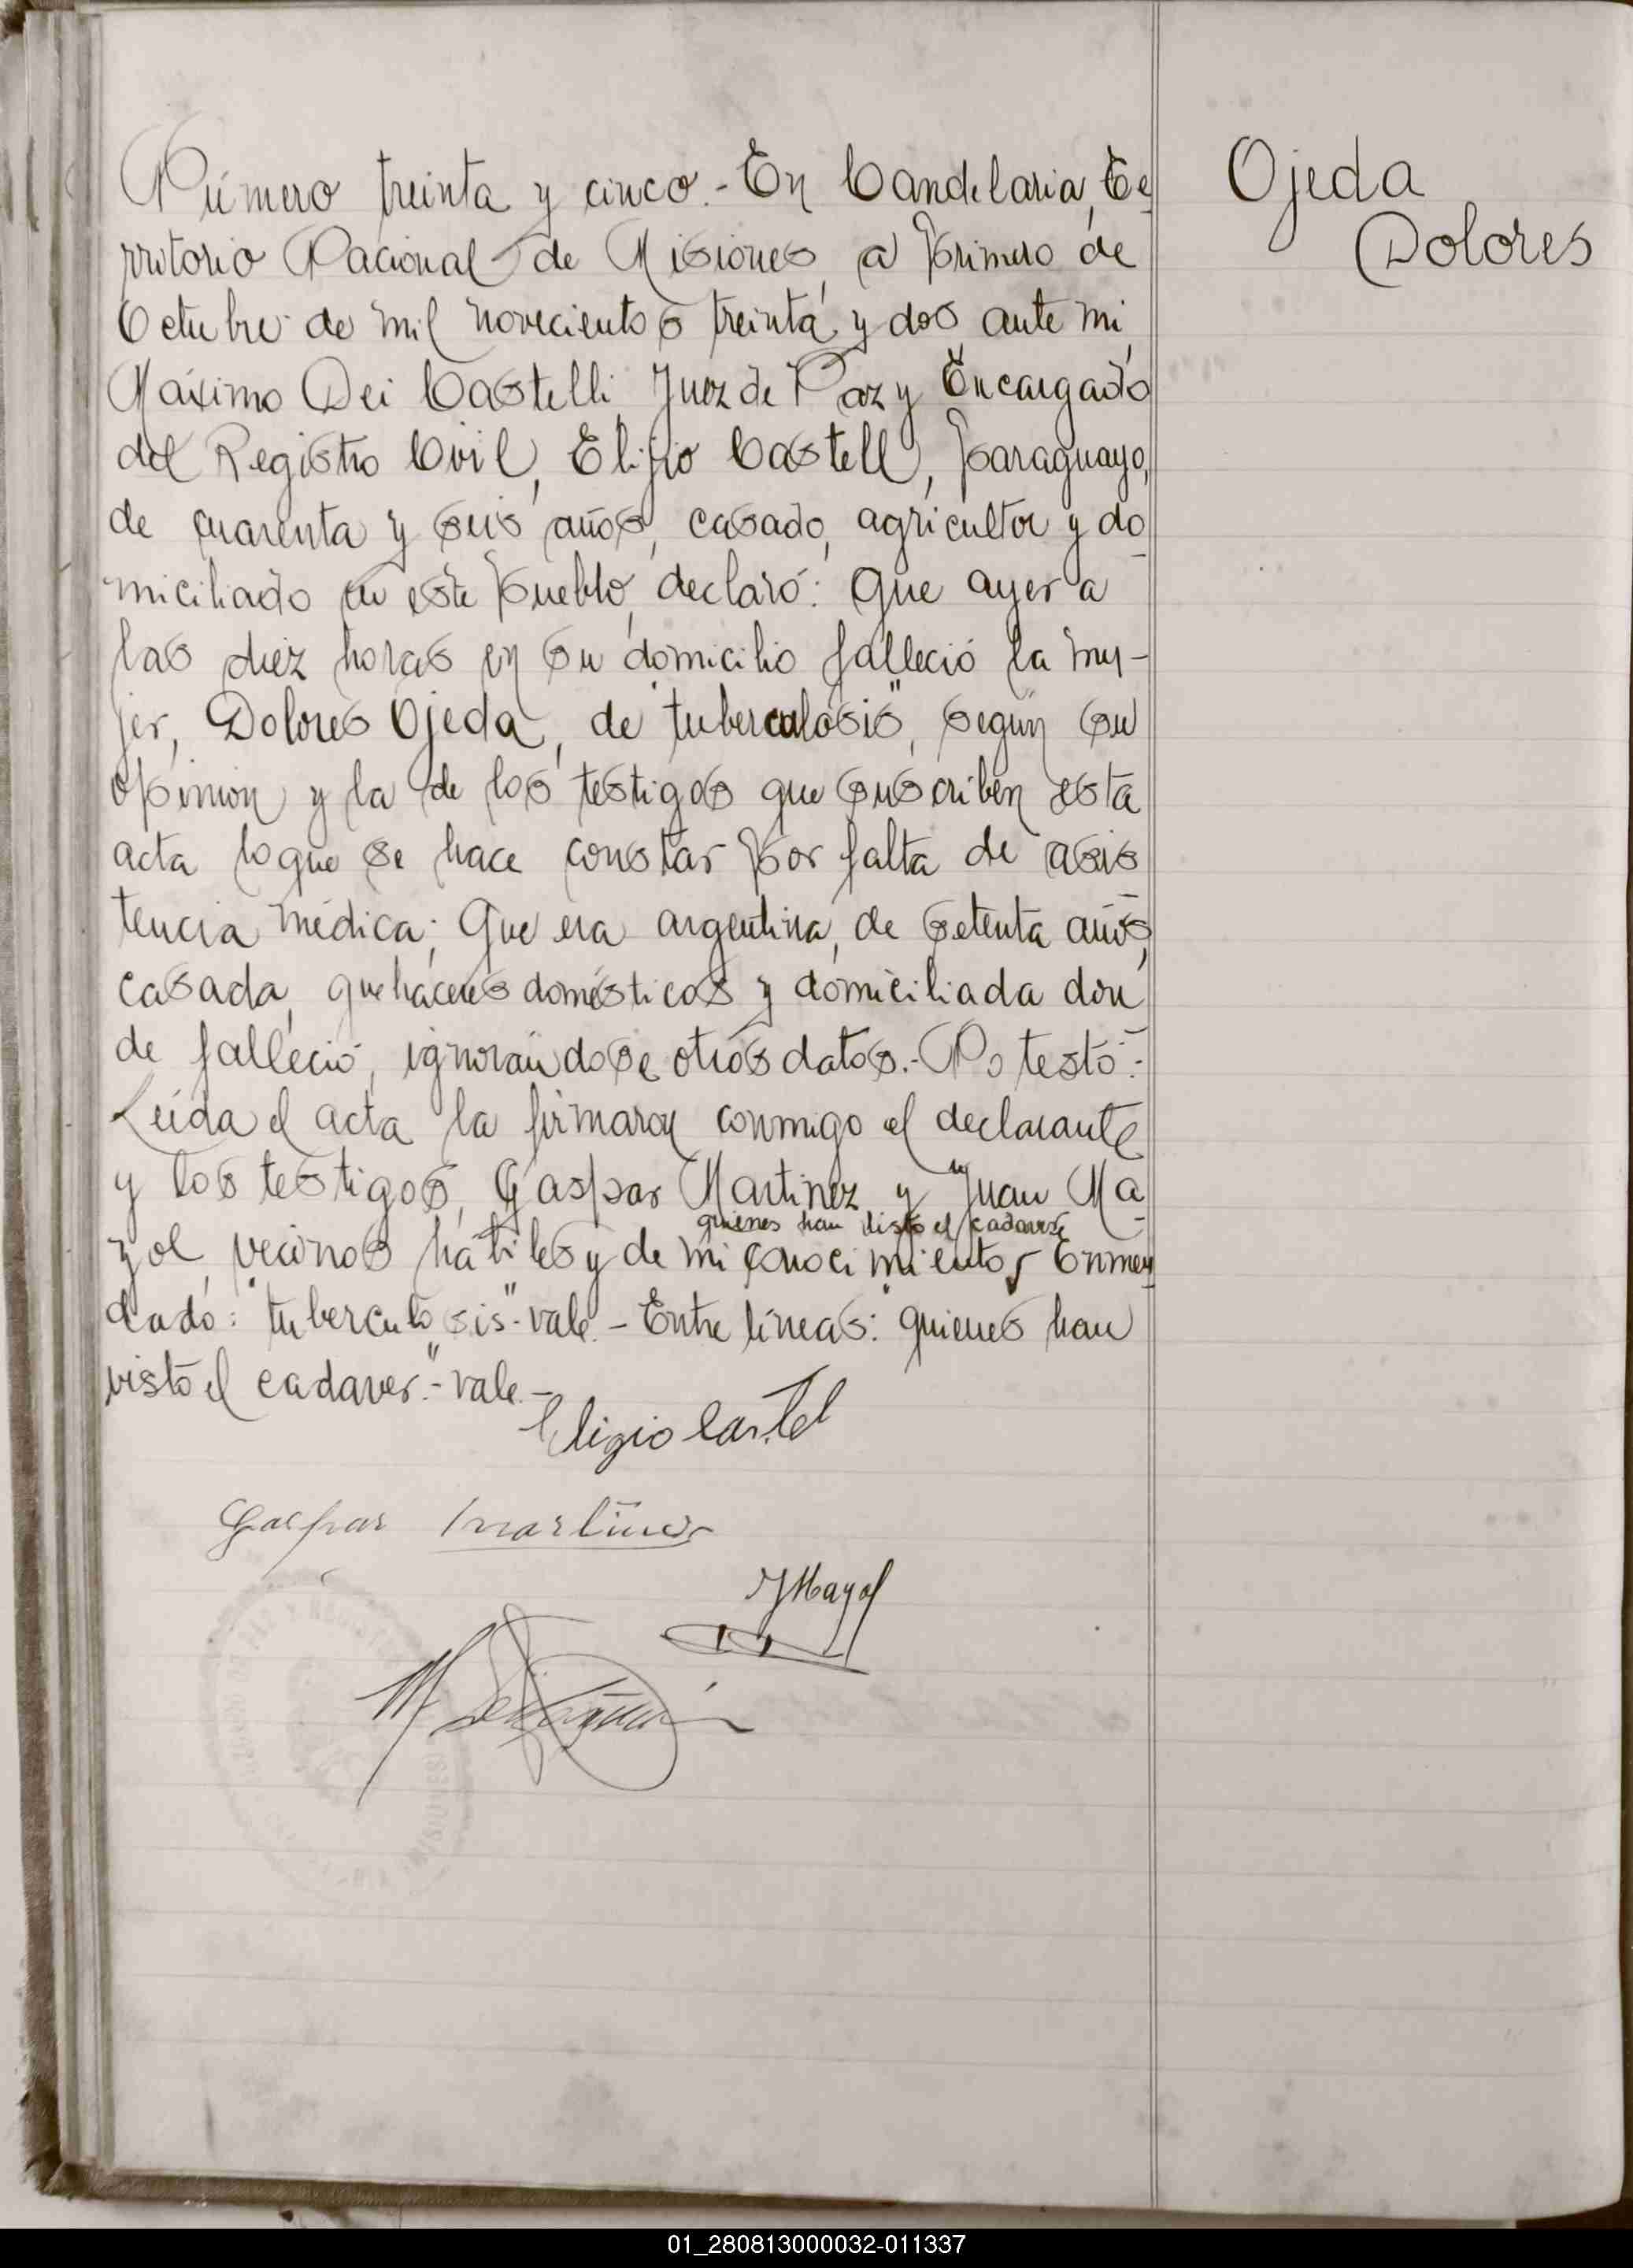 Número treinta y cinco.- En Candelaria, Te-
rritorio Nacional de Misiones, a primero de
Octubre de mil novecientos treinta y dos ante mi,
Máximo Dei Castelli, Juez de Paz y Encargado
del Registro Civil, Elijio Castell, paraguayo,
de cuarenta y seis años, casado, agricultor y do-
miciliado en este pueblo, declaró: Que ayer a
las diez horas en su domicilio falleció la mu-
jer, Dolores Ojeda, de "tuberculosis", según su
opinion y la de los testigos que suscriben esta
acta lo que se hace constar por falta de asis-
tencia médica; Que era argentina, de setenta años,
casada, quehaceres domésticos y domiciliada don-
de falleció, ignorandose otros datos.- No testó.-
Leida el acta la firmaron conmigo el declarante
y los testigos, Gaspar Martinez y Juan Ma-
quienes han visto el cadaver
yol, vecinos hábiles y de mi conocimiento, Enmen-
dado: "tuberculosis"-vale.- Entre líneas: "quienes han
visto el cadaver."-vale.-
Eligio Castel
Gaspar Martinez
J Mayol
Ojeda
Dolores
01_280813000032-011337